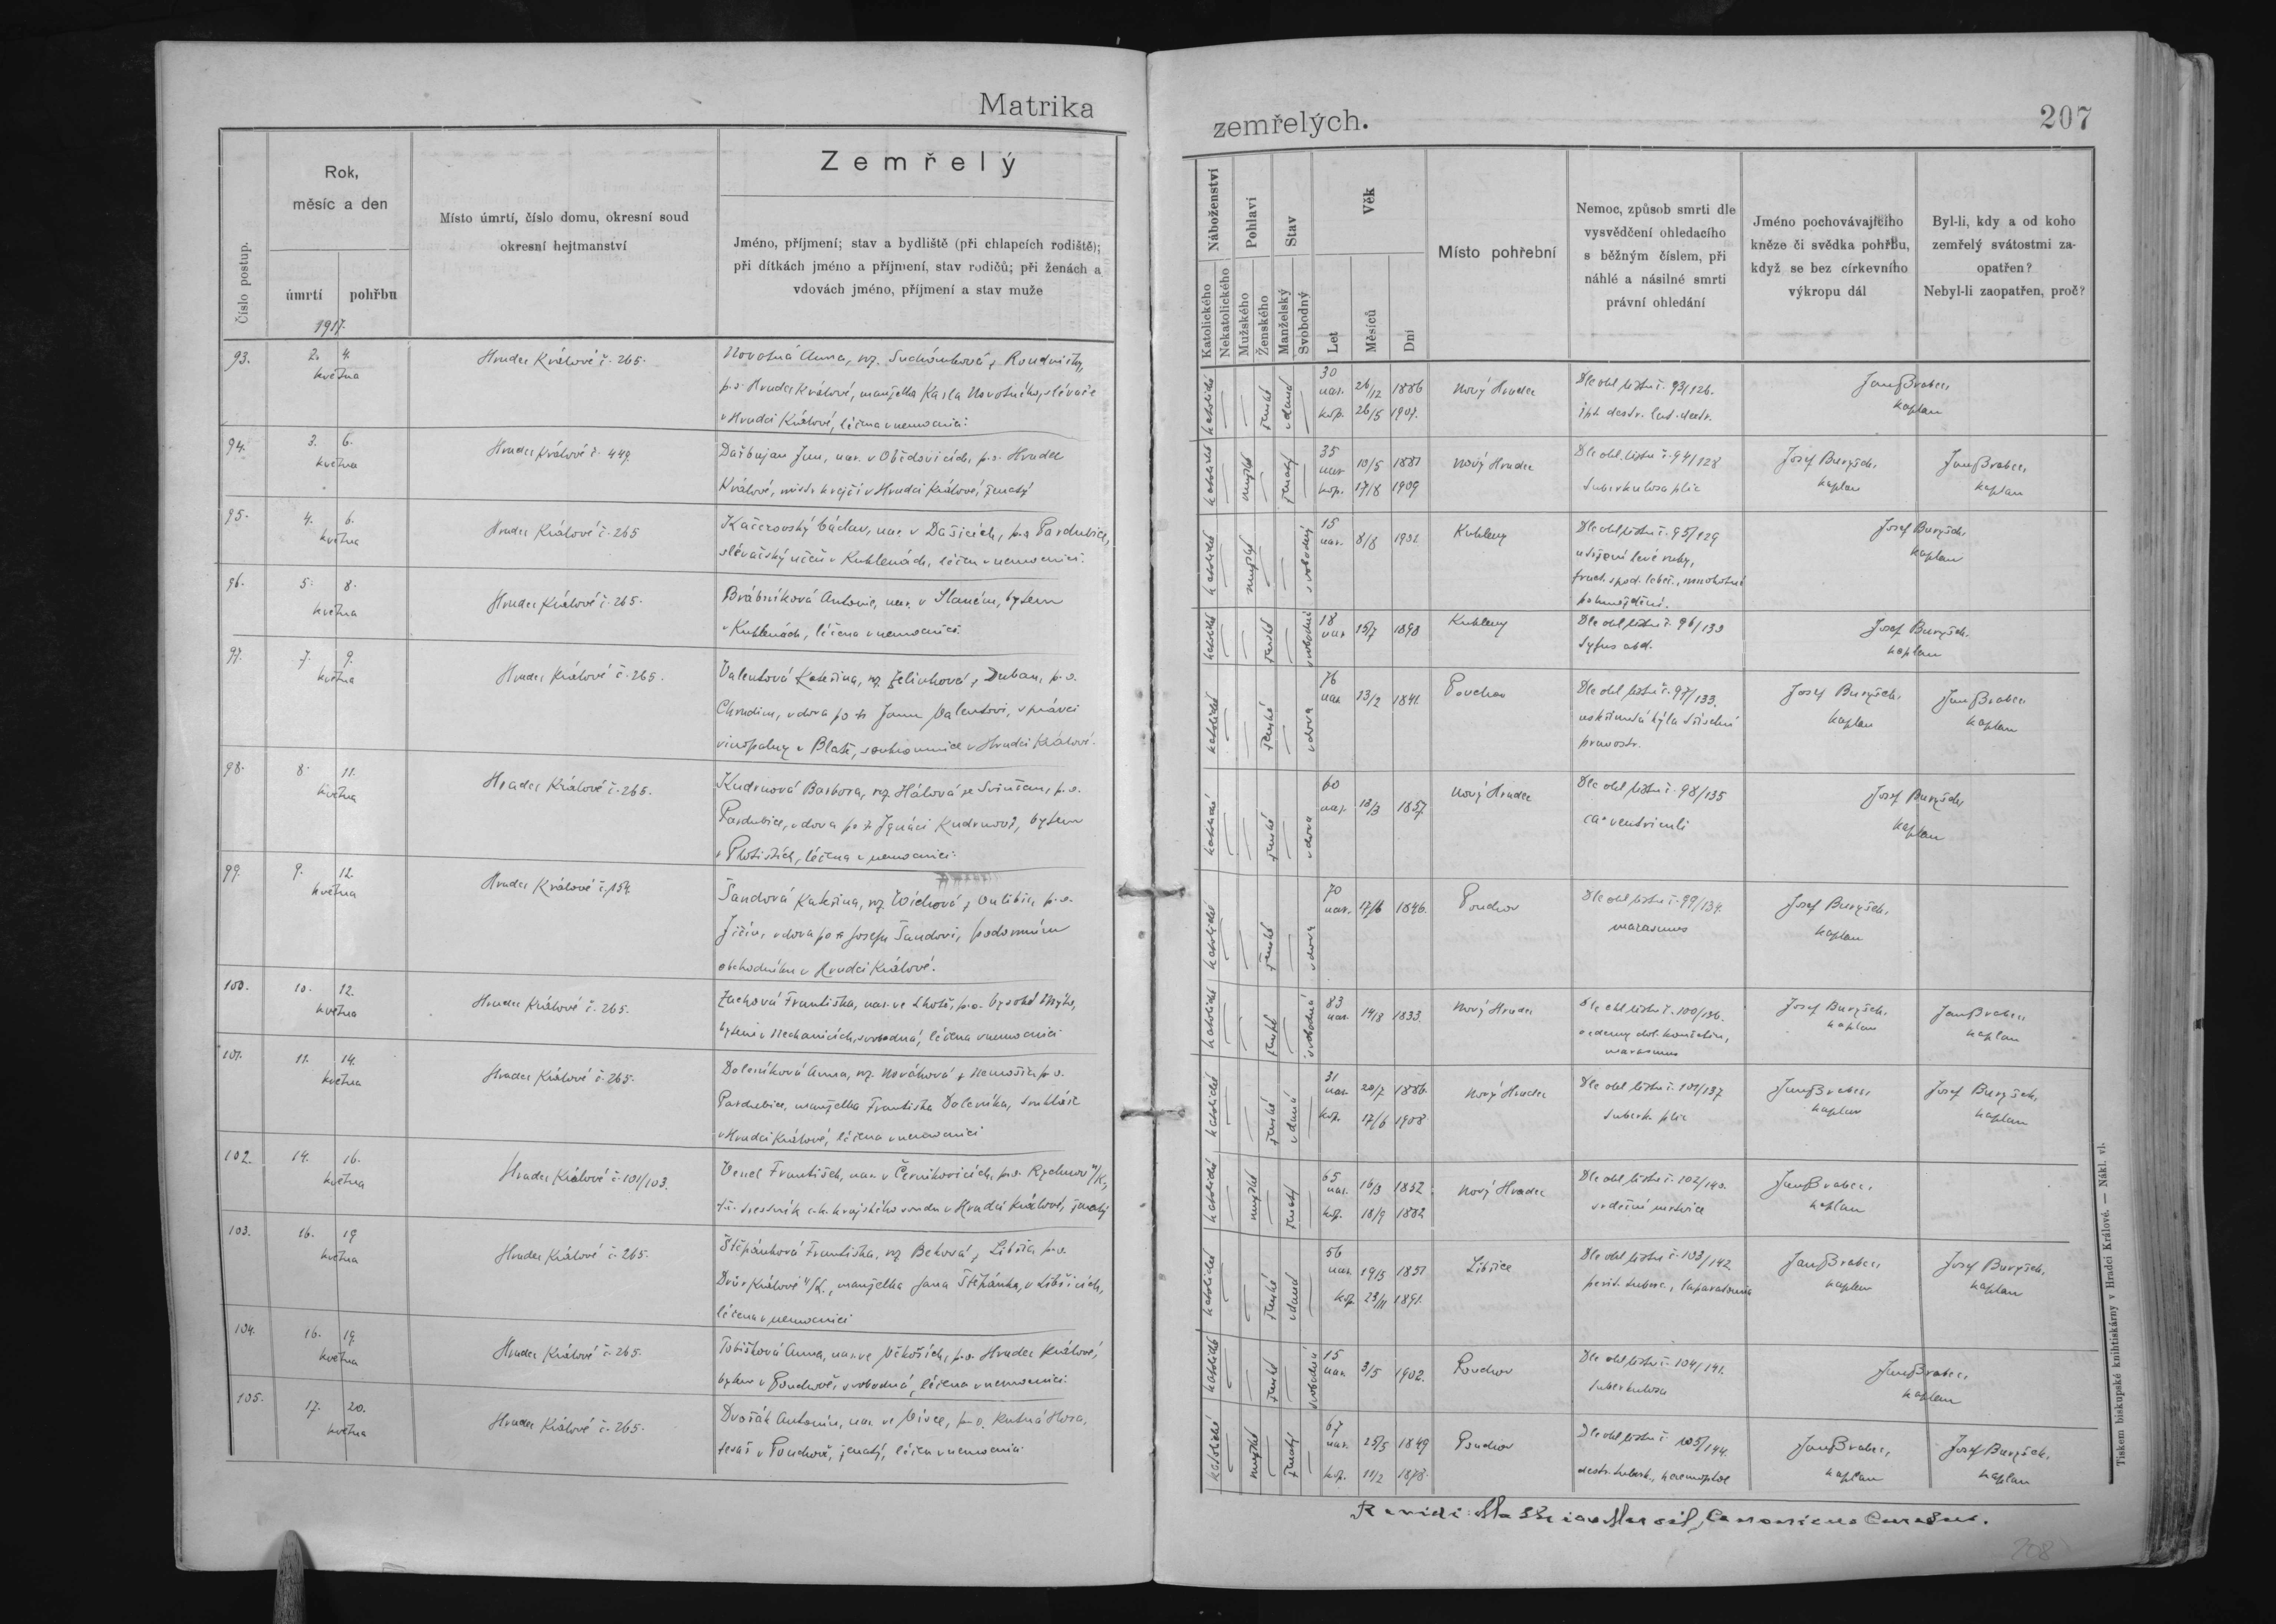 Matrika
zemřelých.
207
Číslo postup.
Rok,
měsíc a den
úmrtí
pohřbu
1917.
Místo úmrtí, číslo domu, okresní soud
okresní hejtmanství
Zemřelý
Jméno, příjmení; stav a bydliště (při chlapcích rodiště);
při dítkách jméno a příjmení, stav rodičů; při ženách a
vdovách jméno, příjmení a stav muže
Náboženství
Katolického
Nekatolického
Pohlaví
Mužského
Ženského
Stav
Manželský
Svobodný
Věk
Let
Měsíců
Dní
Místo pohřební
Nemoc, způsob smrti dle
vysvědčení ohledacího
s běžným číslem, při
náhlé a násilné smrti
právní ohledání
Jméno pochovávajícího
kněze či svědka pohřbu,
když se bez církevního
výkropu dál
Byl-li, kdy a od koho
zemřelý svátostmi za-
opatřen?
Nebyl-li zaopatřen, proč?
93.
2. 4.
května
Hradec Králové č. 265.
Novotná Anna, roz. Suchánková z Roudničky,
p.s. Hradec Králové, manželka Karla Novotného, slévače
v Hradci Králové, léčena v nemocnici.
katolické
ženské
vdaná
30
nar. 26/12 1886
kop. 26/5 1907.
Nový Hradec
Dle ohl. listu č. 93/126.
Jan Brabec,
kaplan
94.
3. 6.
května
Hradec Králové č. 449.
Jan, nar. v Obědovicích, p.s. Hradec
Králové, mistr krejčí v Hradci Králové, ženatý
katolické
mužské
ženatý
35
nar. 10/5 1881
kop. 17/8 1909
Nový Hradec
Dle ohl. listu č. 94/128
tuberkulosa plic
Josef Buryšek,
kaplan
Jan Brabec,
kaplan
95.
4. 6.
května
Hradec Králové č. 265
Kačerovský Václav, nar. v Dašicích, p.s. Pardubice,
slévačský učeň v Kuklenách, léčen v nemocnici.
katolické
mužské
svobodný
15
nar. 8/8 1901
Kukleny
Dle ohl. listu č. 95/129
utržení levé ruky,
fract. spod. lebeč., mnohotné
pohmoždění.
Josef Buryšek,
kaplan
96.
5. 8.
května
Hradec Králové č. 265.
Brábníková Antonie, nar. v Slaném, bytem
v Kuklenách, léčena v nemocnici.
katolické
ženské
svobodná
18
nar. 15/7 1898
Kukleny
Dle ohl. listu č. 96/133
Tyfus abd.
Josef Buryšek,
kaplan
97.
7. 9.
května
Hradec Králové č. 265.
Valentová Kateřina, roz. Jelínková z Duban, p.s.
Chrudim, vdova po † Janu Valentovi, správci
vinopalny v Blatě, soukromnice v Hradci Králové.
katolické
ženské
vdova
76
nar. 13/2 1841.
Pouchov
Dle ohl. listu č. 97/133.
uskřinutá kýla tříselní
pravostr.
Josef Buryšek,
kaplan
Jan Brabec,
kaplan
98.
8. 11.
května
Hradec Králové č. 265.
Kudrnová Barbora, roz. Hálová ze Svinčan, p.s.
Pardubice, vdova po † Ignáci Kudrnovi, bytem
v Plotištích, léčena v nemocnici.
katolické
ženské
vdova
60
nar. 13/3 1857.
Nový Hradec
Dle ohl. listu č. 98/135
ca. ventriculi
Josef Buryšek,
kaplan
99.
9. 12.
května
Hradec Králové č. 154.
Šandová Kateřina, roz. Wichová z Oulibic, p.s.
Jičín, vdova po † Josefu Šandovi, podomním
obchodníku v Hradci Králové.
katolické
ženské
vdova
70
nar. 17/6 1846.
Pouchov
Dle ohl. listu č. 99/134.
marasmus
Josef Buryšek,
kaplan
100.
10. 12.
května
Hradec Králové č. 265.
Zachová Františka, nar. ve Lhotě, p.s. Vysoké Mýto,
bytem v Nechanicích, svobodná, léčena v nemocnici
katolické
ženské
svobodná
83
nar. 14/8 1833.
Nový Hradec
Dle ohl. listu č. 100/136.
oedemy dol. končetin,
marasmus
Josef Buryšek,
kaplan
Jan Brabec,
kaplan
101.
11. 14.
května
Hradec Králové č. 265.
Doleníková Anna, roz. Nováková z Nemošic p.s.
Pardubice, manželka Františka Doleníka, truhláře
v Hradci Králové, léčena v nemocnici
katolické
ženské
vdaná
31
nar. 20/7 1886.
kop. 17/6 1908
Nový Hradec
Dle ohl. listu č. 101/137
tuberk. plic
Jan Brabec,
kaplan
Josef Buryšek,
kaplan
102.
14. 16.
května
Hradec Králové č. 101/103.
Vencl František, nar. v Černíkovicích, p.s. Rychnov n/K,
c.k. krajského soudu v Hradci Králové, ženatý
katolické
mužské
ženatý
65
nar. 16/3 1852
kop. 18/9 1882
Nový Hradec
Dle ohl. listu č. 102/140.
srdeční mrtvice
Jan Brabec,
kaplan
103.
16. 19.
května
Hradec Králové č. 265.
Štěpánková Františka, roz. Beková z Libřic p.s.
Dvůr Králové n/L., manželka Jana Štěpánka, v Libřicích,
léčena v nemocnici
katolické
ženské
vdaná
56
nar. 19/3
kop. 23/11 1891.
Libřice
Dle ohl. listu č. 103/142.
perit. tuberc., laparatomia
Jan Brabec,
kaplan
Josef Buryšek,
kaplan
104.
16. 19.
května
Hradec Králové č. 265.
Tobišková Anna, nar. ve Věkoších, p.s. Hradec Králové,
bytem v Pouchově, svobodná, léčena v nemocnici.
katolické
ženské
svobodná
15
nar. 3/5 1902.
Pouchov
Dle ohl. listu č. 104/141.
tuberkulosa
Jan Brabec,
kaplan
105.
17. 20.
května
Hradec Králové č. 265.
Dvořák Antonín, nar. ve Vivce, p.s. Kutná Hora,
tesař v Pouchově, ženatý, léčen v nemocnici.
katolické
mužské
ženatý
67
nar. 25/5 1849
kop. 11/2 1878.
Pouchov
Dle ohl. listu č. 105/144.
destr. tuberk., haemoptoe
Jan Brabec,
kaplan
Josef Buryšek,
kaplan
Revidi:
Tiskem biskupské knihtiskárny v Hradci Králové. — Nákl. vl.
208